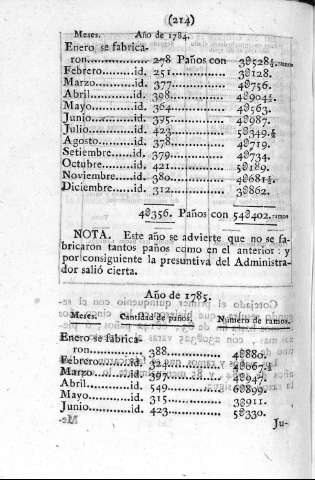 (214)
Meses. Año de 1784.
Enero se fabrica-
ron............ 278 Paños con 3ↀ528½. ramos
Febrero.........id. 251............ 3ↀ128.
Marzo..........id. 377............ 4ↀ756.
Abril............id. 398............ 4ↀ904½.
Mayo...........id. 364............ 4ↀ563.
Junio...........id. 395............ 4ↀ987.
Julio............id. 423............ 5ↀ349.½
Agosto.........id. 378............ 4ↀ719.
Setiembre.....id. 379............ 4ↀ734.
Octubre........id. 421............ 5ↀ189.
Noviembre....id. 380............ 4ↀ681½.
Diciembre.....id. 312............ 3ↀ862.
4ↀ356. Paños con 54ↀ402. ramos
NOTA. Este año se advierte que no se fa-
bricaron tantos paños como en el anterior: y
por consiguiente la presuntiva del Administra-
dor salió cierta.
Año de 1785.
Meses. Cantidad de paños. Número de ramos.
Enero se fabrica-
ron............ 388............ 4ↀ880.
Febrero.........id. 324............ 4ↀ067.½
Marzo..........id. 397............ 4ↀ947.
Abril............id. 549............ 6ↀ899.
Mayo...........id. 315............ 3ↀ911.
Junio...........id. 423............ 5ↀ330.
Ju-